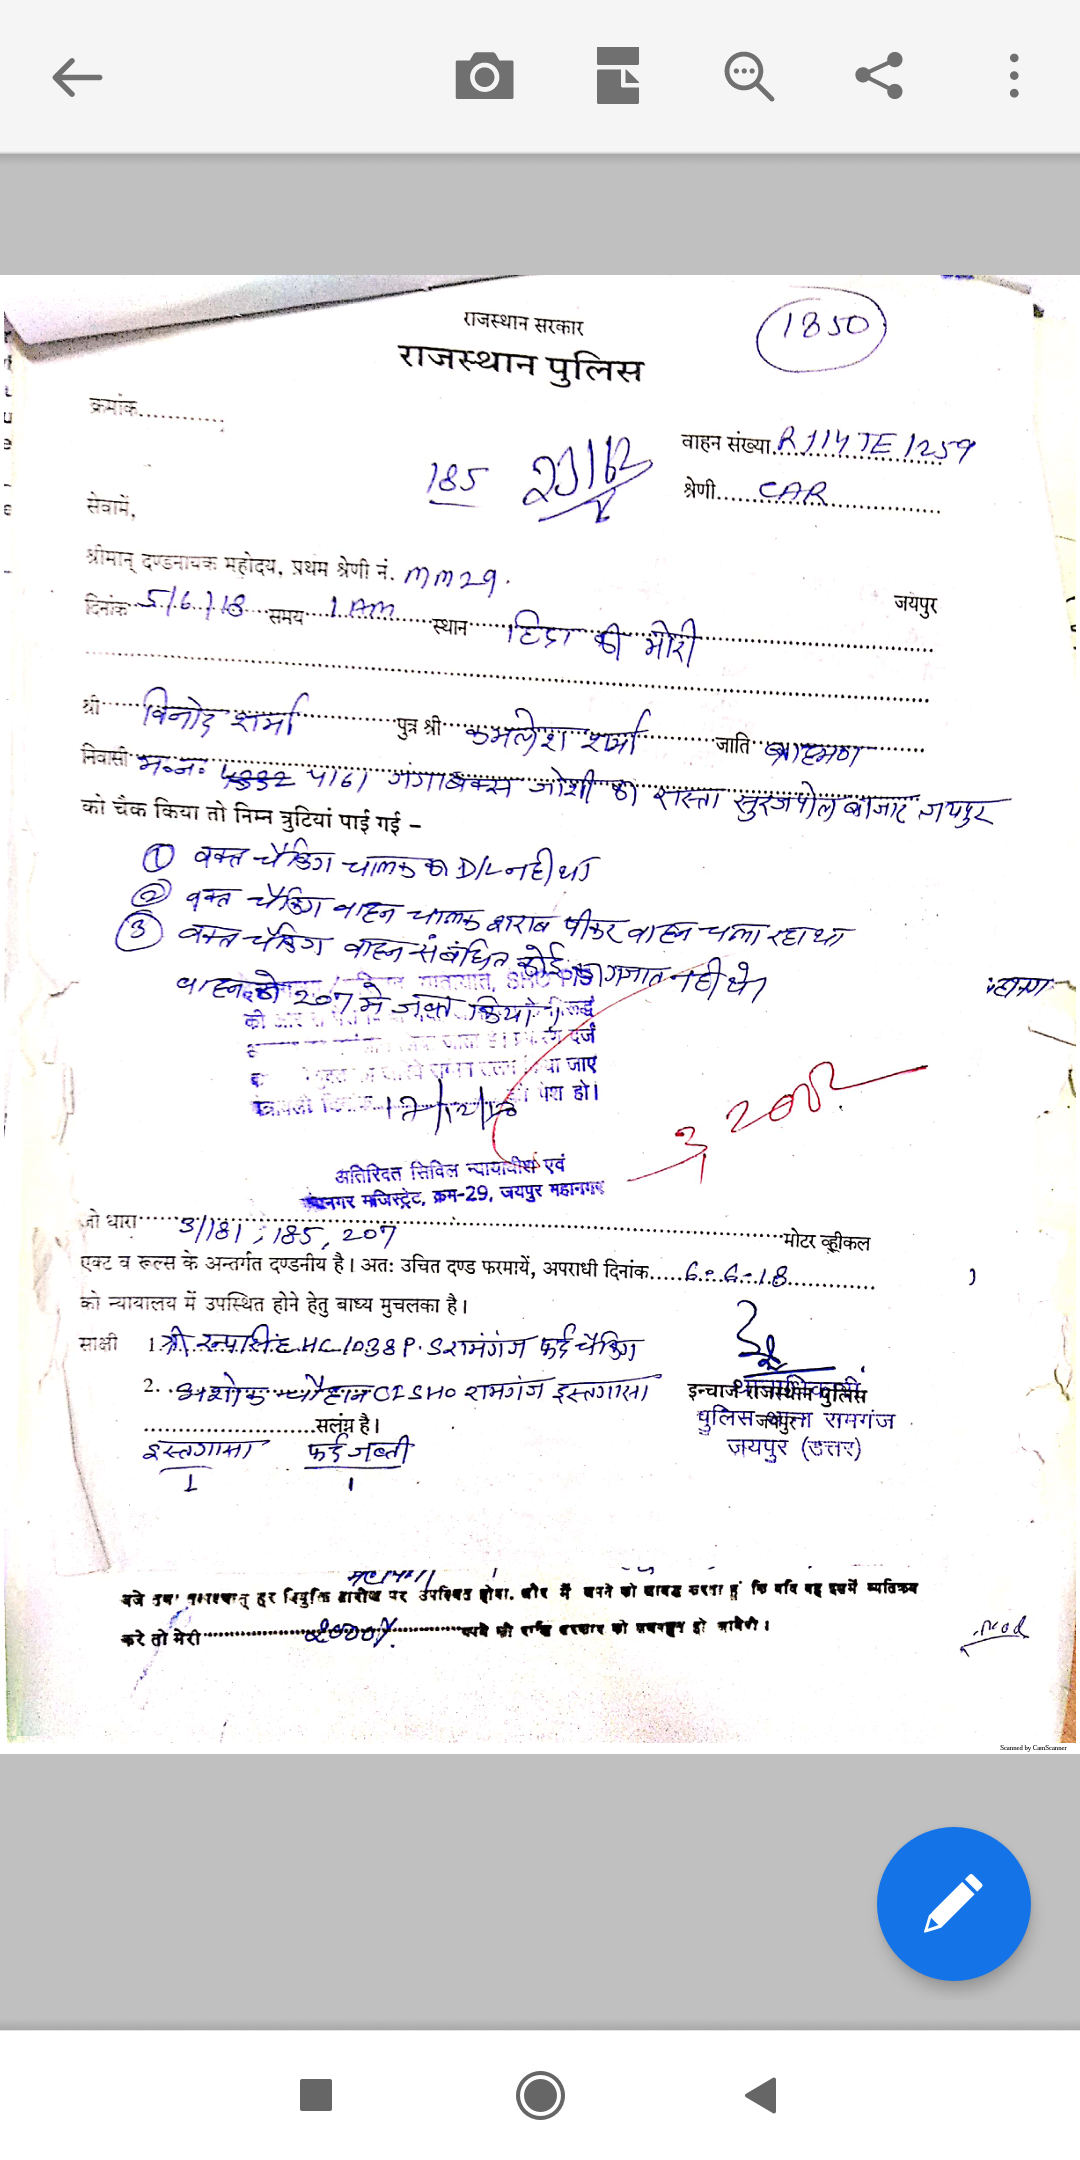 राजस्थान सरकार
1350
राजस्थान पुलिस
क्रमांक............
वाहन संख्या RJ14TE1259
185
श्रेणी CAR
सेवामें,
श्रीमान् दण्डनायक महोदय, प्रथम श्रेणी नं. MM29.
जयपुर
दिनांक 5/6/18 समय 1 AM स्थान की मोरी
श्री विनोद शर्मा पुत्र श्री कमलेश शर्मा जाति ब्राह्मण
निवासी म.न. गंगाबक्स जोशी का रास्ता सुरजपोल बाजार जयपुर
को चैक किया तो निम्न त्रुटियां पाई गई –
① वक्त चैकिंग चालक का D/L नही था
② वक्त चैकिंग वाहन चालक शराब पीकर वाहन चला रहा था
③ वक्त चैकिंग वाहन संबंधित कोई कागजात नही थे
वाहन को 207 मे जब्त किया
दर्ज
जाए
पेश हो।
17/12/18
अतिरिक्त सिविल न्यायाधीश एवं
महानगर मजिस्ट्रेट, क्रम-29, जयपुर महानगर
जो धारा 3/181, 185, 207 मोटर व्हीकल
एक्ट व रूल्स के अन्तर्गत दण्डनीय है। अतः उचित दण्ड फरमायें, अपराधी दिनांक 6-6-18
को न्यायालय में उपस्थित होने हेतु बाध्य मुचलका है।
साक्षी 1. श्री HC 1038 P.S रामगंज फर्द चैकिंग
2. अशोक चौहान CI SHO रामगंज इस्तगासा
इन्चार्ज राजस्थान पुलिस
थानाधिकारी
सलंग्न है।
जयपुर
पुलिस थाना रामगंज
इस्तगासा फर्द जब्ती
जयपुर (उत्तर)
1 1
हर नियुक्ति तारीख पर उपस्थित होवा. और मैं अपने को आबद्ध करता हूं कि यदि वह इसमें व्यतिक्रम
करे तो मेरी रूपये की राशि सरकार को जब्त हो जावेगी।
Scanned by CamScanner